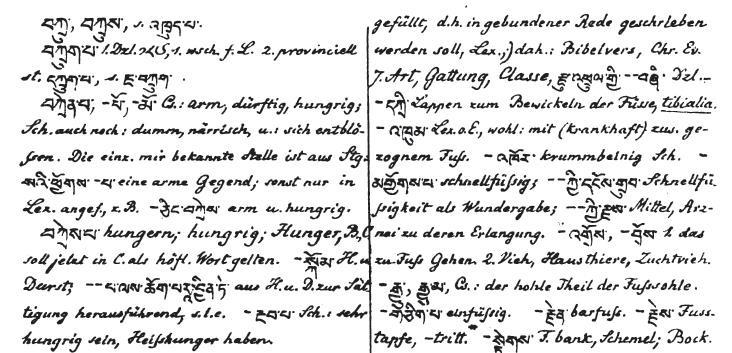 བཀྲ, བཀྲུས, s. འཁྲུད་པ་.
བཀྲུག་པ་ 1. Dzl. s. wsch. f. L. 2. provinciell
st. དཀྲུག་པ་, s. བཀྲུག་
བཀྲེན་པ་, -པོ་, -མོ་ Cs.: arm, dürftig, hungrig;
Sch. auch noch: dumm, närrisch, u.: sich entblö-
ssen. Die einz. mir bekannte Stelle ist aus Stg.
སའི་ཕྱོགས་ -པ་ eine arme Gegend; sonst nur in
Lex. angef., z.B. arm u. hungrig.
བཀྲེས་པ་ hungern; hungrig; Hunger, B, C
soll jetzt in C. als höfl. Wort gelten. - སྐོམ་ H. u.
Durst; aus H. u. D. zur Sät
tigung herausführend, s.l.e. - Sch.: sehr
hungrig sein, Heisshunger haben.
gefüllt, d.h. in gebundener Rede geschrieben
werden soll, Lex.;) dah.: Bibelvers, Chr. Ev.
7. Art, Gattung, Classe, རྫུ་འཕྲུལ་གྱི་ -- བཞི་ Dzl. --
- དཀྲི་ Lappen zum Bewickeln der Füsse, tibialia.
- འཁུམ་ Lex. o. E., wohl: mit (krankhaft) zus. ge-
zognem Fuss. - འཁྱོར་ krummbeinig Sch. -
མགྱོགས་པ་ schnellfüssig; -- ཀྱི་དངོས་གྲུབ་ Schnellfü-
ssigkeit als Wundergabe; -- ཀྱི་རྫས་ Mittel, Arz-
nei zu deren Erlangung. - འགྲོས་, - གྲོས་ 1. das
zu Fuss Gehen. 2. Vieh, Hausthiere, Zuchtvieh.
Cs.: der hohle Theil der Fussohle.
- གཅིག་པ་ einfüssig. - རྗེན་ barfuss. - རྗེས་ Fuss-
tapfe, -tritt. - སྟེགས་ F. bank, Schemel; Bock.